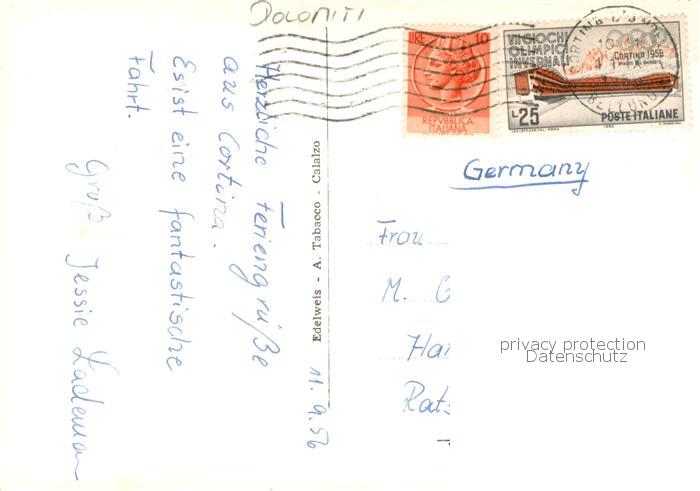 DOLOMITI
Herzliche Feriengrüße
aus Cortina.
Es ist eine fantastische
Fahrt.
Gruß Jessie
11.9.56
Edelweis - A. Tabacco - Calalzo
LIRE 10
REPVBBLICA
ITALIANA
VII GIOCHI
OLIMPICI
INVERNALI
CORTINA 1956
L.25
POSTE ITALIANE
1956
CORTINA D'AMPEZZO
BELLUNO
Germany
Frau
M. G
Ha
Rats
privacy protection
Datenschutz